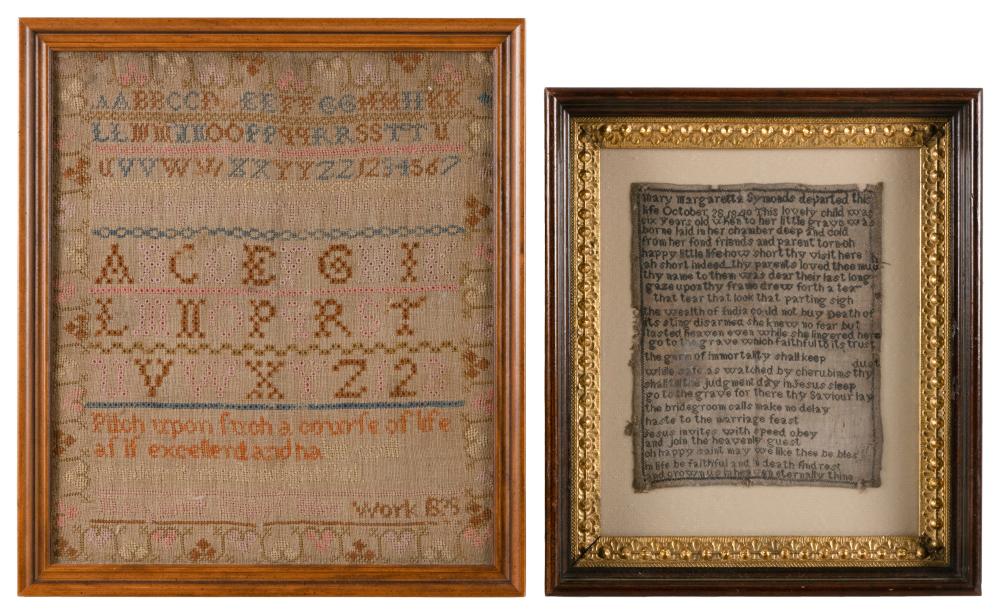 AABBCCD EEFFGGHHKK
LLMMNNOOPPqqRRSSTTU
UVVWWXXYYZZ1234567
A C E G I
L N P R T
V X Z 2
Pitch upon such a course of life
as is excellent and ha
Work
Mary Margaretta Symonds departed this
life October 28 1840 This lovely child was
six years old when to her little grave was
borne laid in her chamber deep and cold
from her fond friends and parent torn oh
happy little life how short thy visit here
ah short indeed thy parents loved thee much
thy name to them was dear their last long
gaze upon thy frame drew forth a tear
that tear that look that parting sigh
the wealth of India could not buy Death of
its sting disarmed she knew no fear but
tasted heaven even while she lingered here
go to the grave which faithful to its trust
the germ of immortality shall keep
dust
while safe as watched by cherubims thy
shall till the judgment day in Jesus sleep
go to the grave for there thy Saviour lay
the bridegroom calls make no delay
haste to the marriage feast
Jesus invites with speed obey
and join the heavenly guest
oh happy saint may we like thee be bles
in life be faithful and in death find rest
and crown us in heaven eternally thine